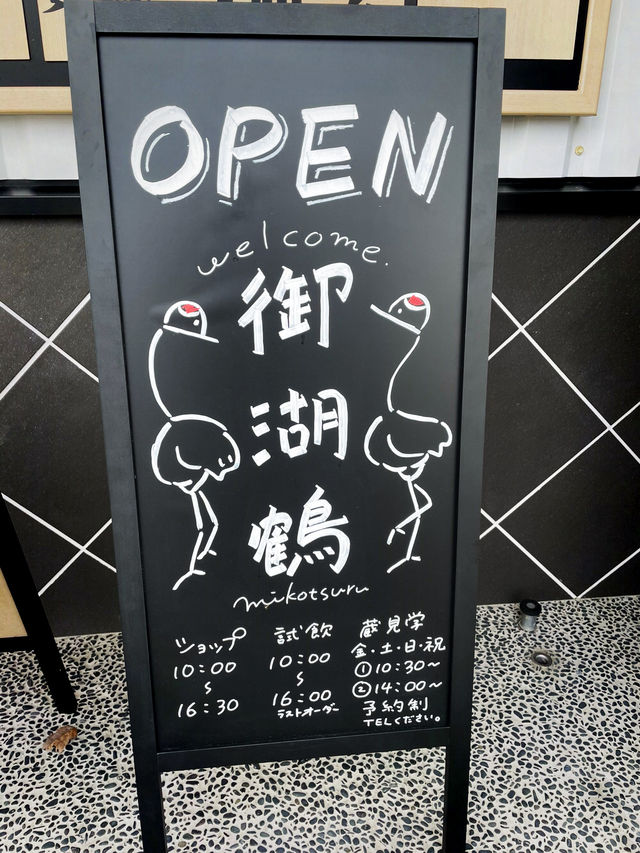 OPEN
welcome.
御
湖
鶴
mikotsuru
ショップ
10:00
〜
16:30
試飲
10:00
〜
16:00
ラストオーダー
蔵見学
金・土・日・祝
①10:30〜
②14:00〜
予約制
TELください。